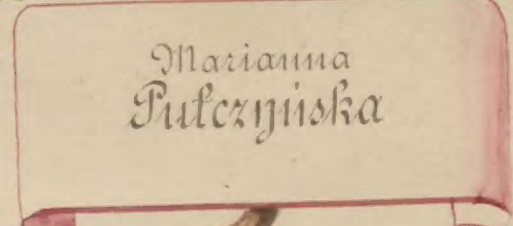 Marianna
Pułczyńska